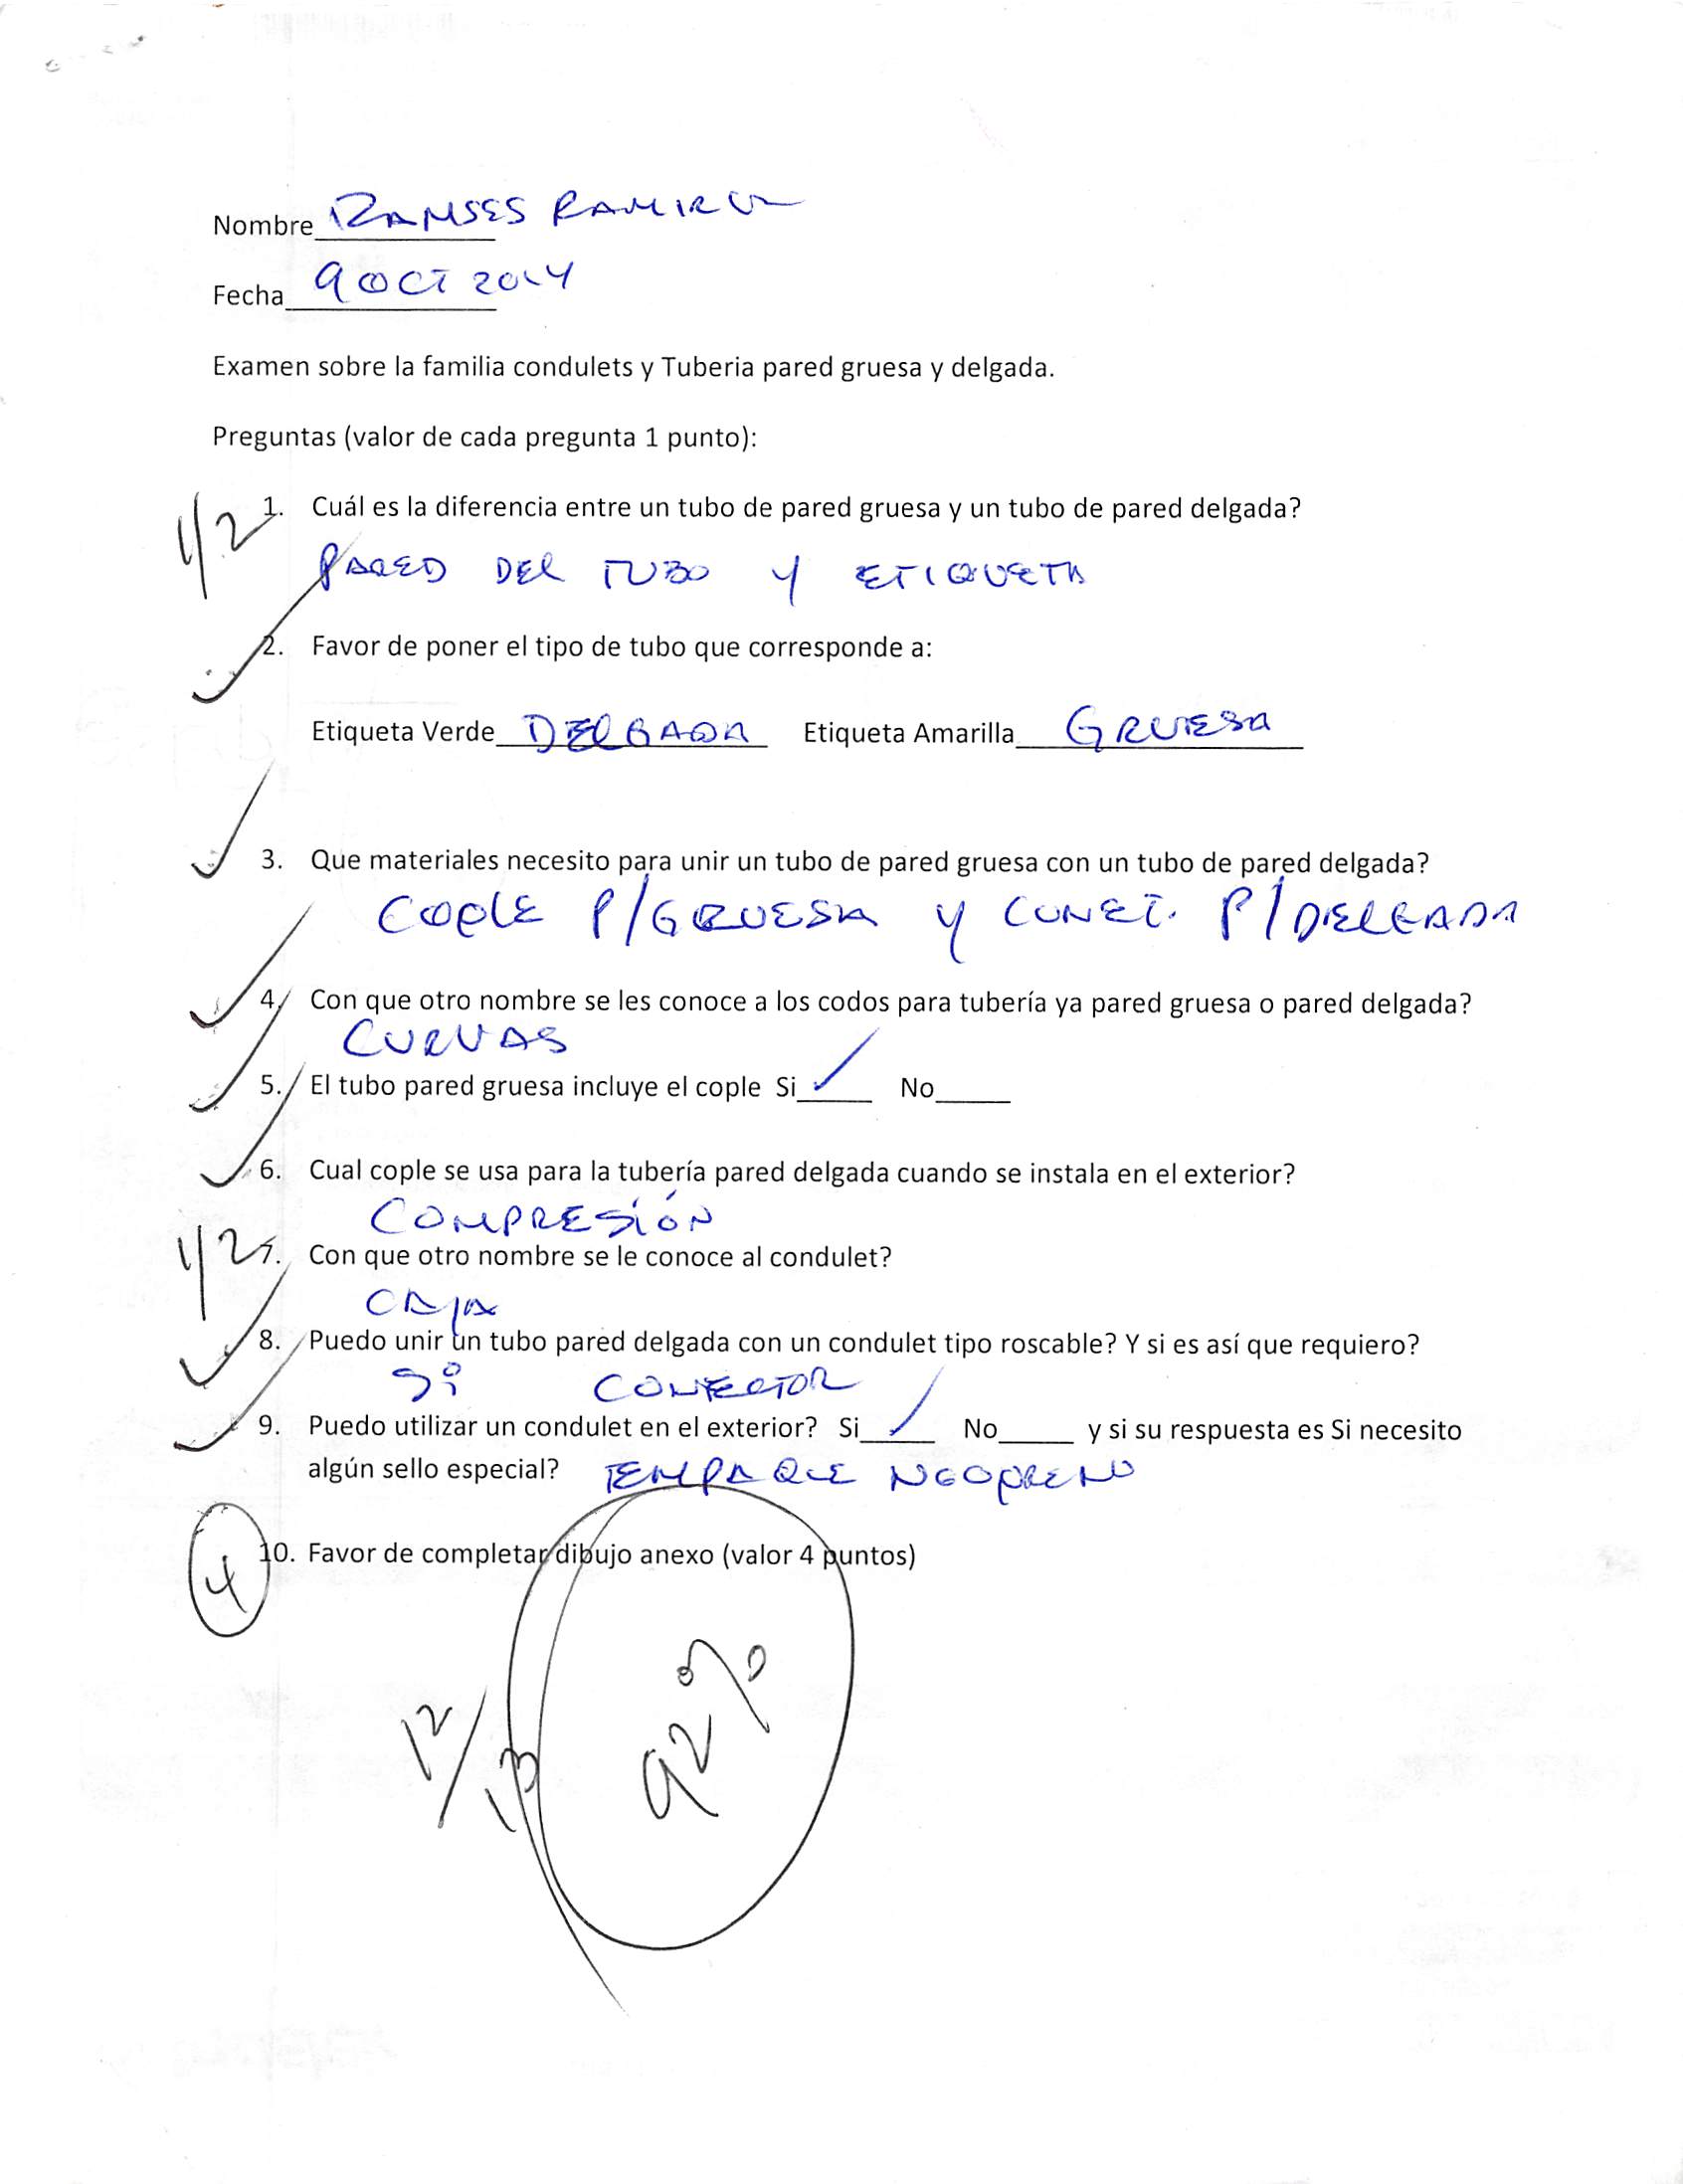 Nombre RAMSES RAMIREZ
Fecha 9 OCT 2014
Examen sobre la familia condulets y Tuberia pared gruesa y delgada.
Preguntas (valor de cada pregunta 1 punto):
1/2 1. Cuál es la diferencia entre un tubo de pared gruesa y un tubo de pared delgada?
PARED DEL TUBO Y ETIQUETA
2. Favor de poner el tipo de tubo que corresponde a:
Etiqueta Verde DELGADA Etiqueta Amarilla GRUESA
3. Que materiales necesito para unir un tubo de pared gruesa con un tubo de pared delgada?
COPLE P/GRUESA Y CONET. P/DELGADA
4. Con que otro nombre se les conoce a los codos para tubería ya pared gruesa o pared delgada?
CURVAS
5. El tubo pared gruesa incluye el cople Si ✓ No_____
6. Cual cople se usa para la tubería pared delgada cuando se instala en el exterior?
COMPRESIÓN
1/2 7. Con que otro nombre se le conoce al condulet?
CAJA
8. Puedo unir un tubo pared delgada con un condulet tipo roscable? Y si es así que requiero?
Si CONECTOR
9. Puedo utilizar un condulet en el exterior? Si ✓ No_____ y si su respuesta es Si necesito
algún sello especial? EMPAQUE NEOPRENO
4 10. Favor de completar dibujo anexo (valor 4 puntos)
12/13
92%